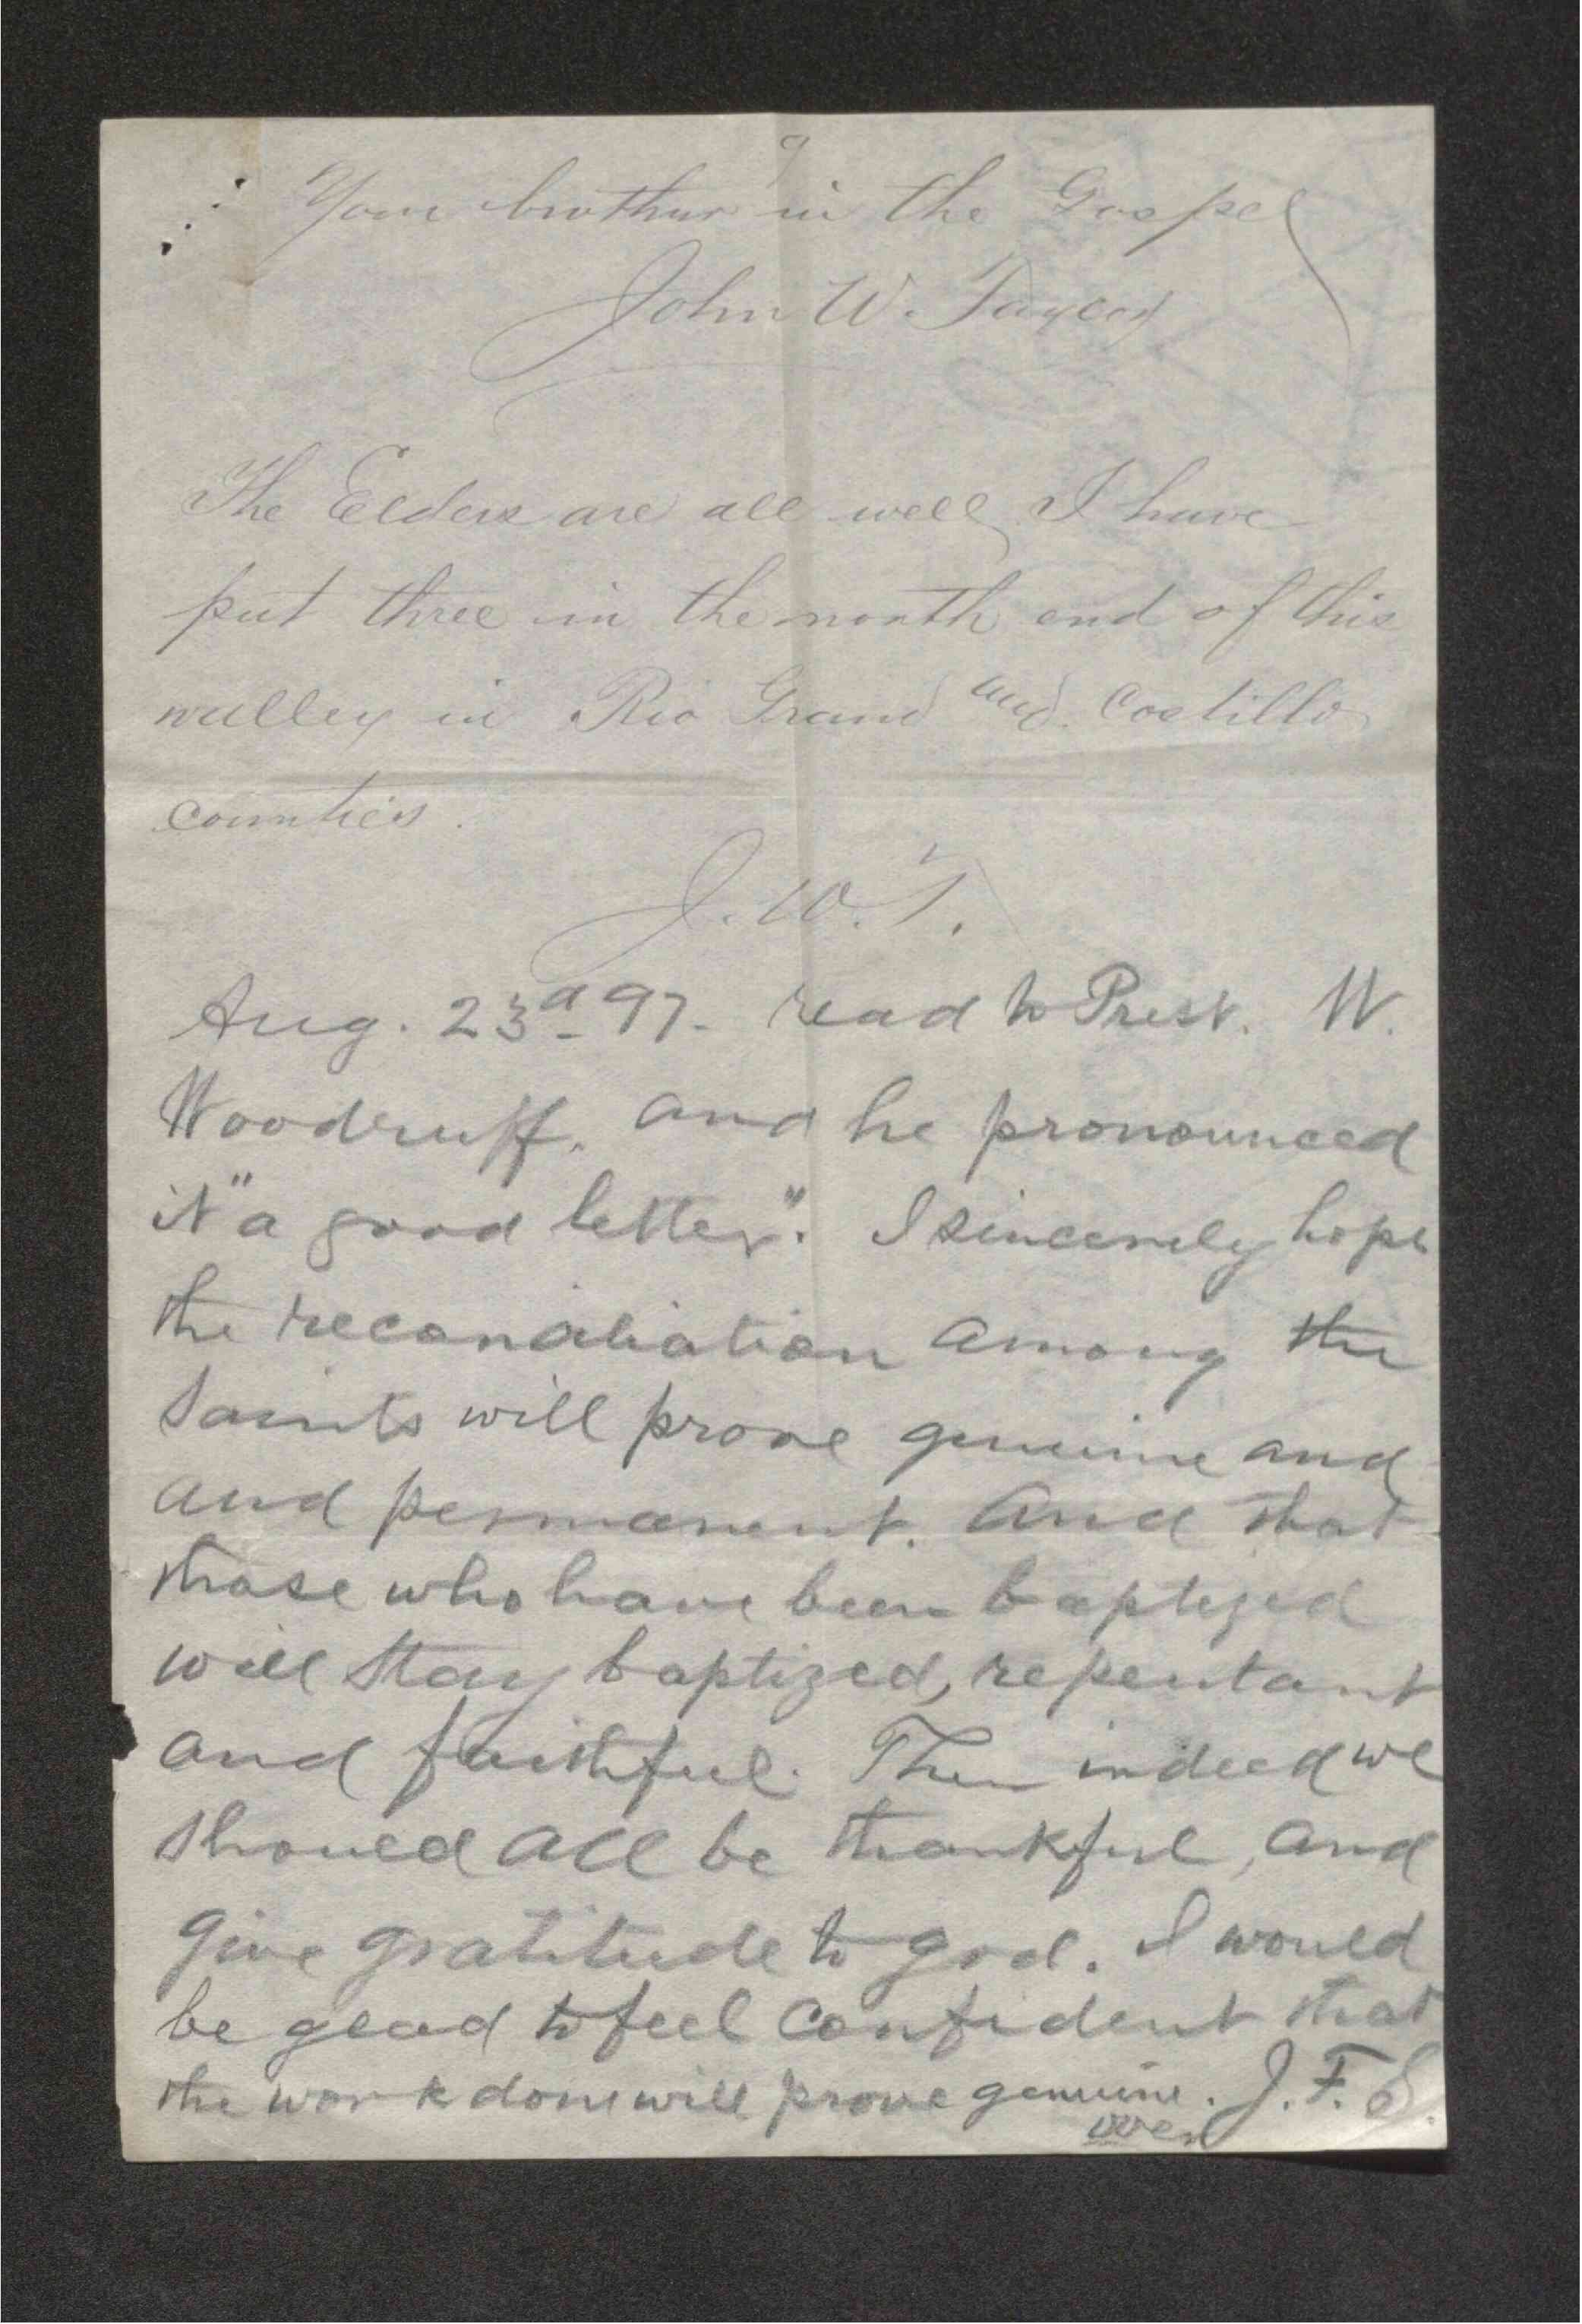 9
Your brother in the Gospel
John W. Taylor
The Elders are all well I have
put three in the north end of this
valley in Rio Grand and Costillo
counties.
J. W. T.
Aug. 23d 97. read to Prest. W.
Woodruff. and he pronounced
it "a good letter". I sincerely hope
the reconciliation among the
Saints will prove genuine and
and permanent. And that
those who have been baptized
will stay baptized, repentant
and faithful. Then indeed we
should all be thankful, and
give gratitude to god. I would
be glad to feel confident that
the work done will prove genuine. J. F. S.
over